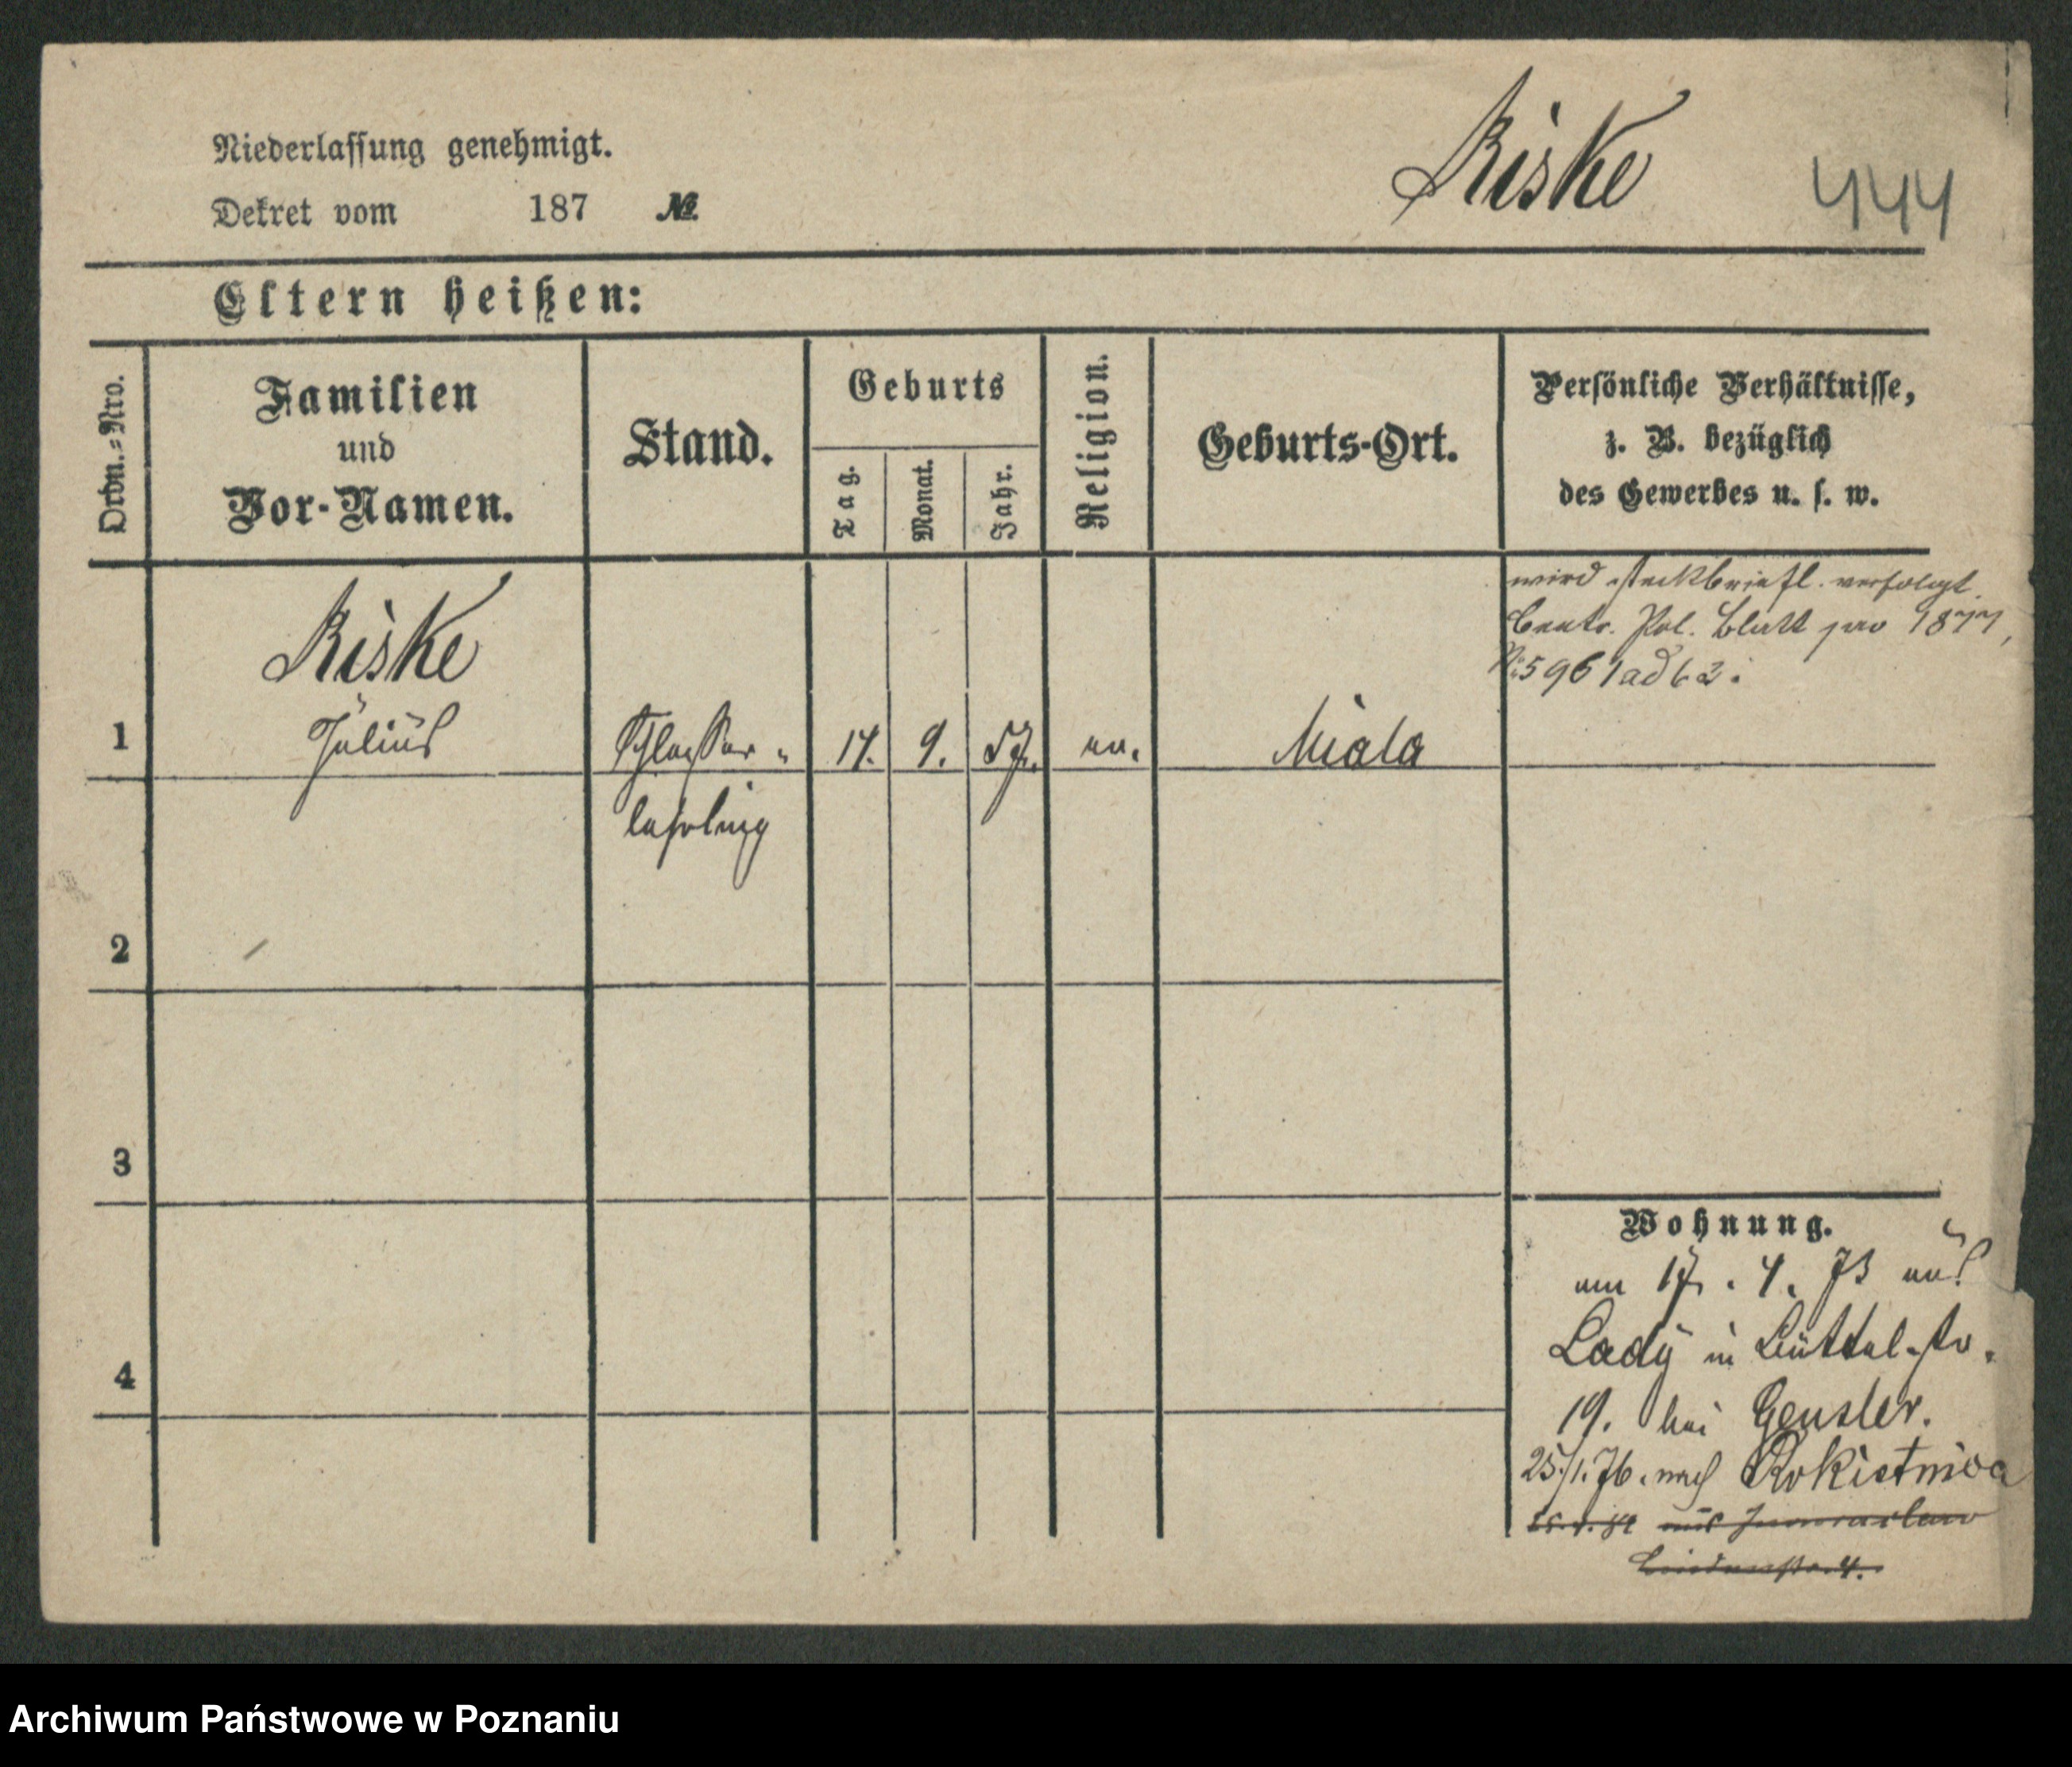 Niederlassung genehmigt.
Dekret vom 187 №
Riske
444
Eltern heißen:
Ordn.-Nro.
Familien
und
Vor-Namen.
Stand.
Geburts
Tag.
Monat.
Jahr.
Religion.
Geburts-Ort.
Persönliche Verhältnisse,
z. B. bezüglich
des Gewerbes u. s. w.
wird steckbriefl. verfolgt.
Centr. Pol. Blatt pro 1877,
№ 5961 ad 62.
Riske
1 Julius Schlosser- 14. 9. 57. ev. Miala
lehrling
2
3
4
Wohnung.
am 17. 4. 73 aus
Lady in Büttelstr.
19. bei Gensler.
25/1.76. nach Rokietnica
aus
Archiwum Państwowe w Poznaniu